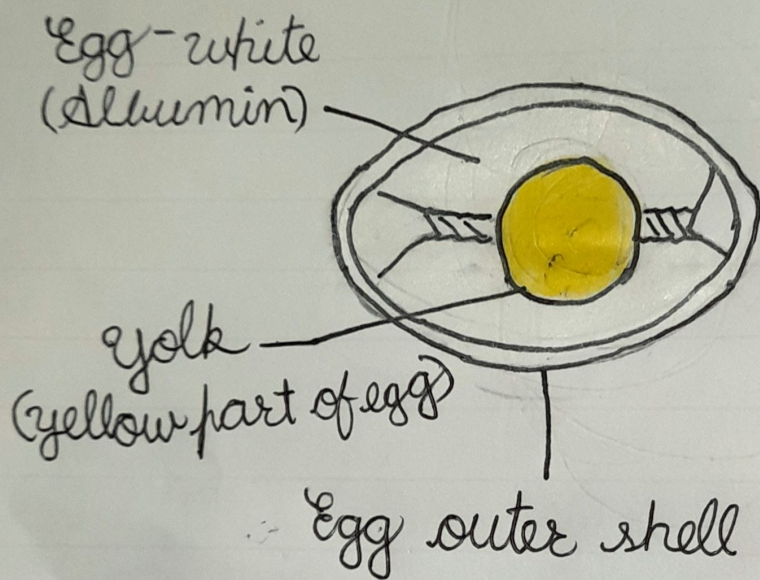 Egg-white
(Albumin)
yolk
(yellow part of egg)
Egg outer shell